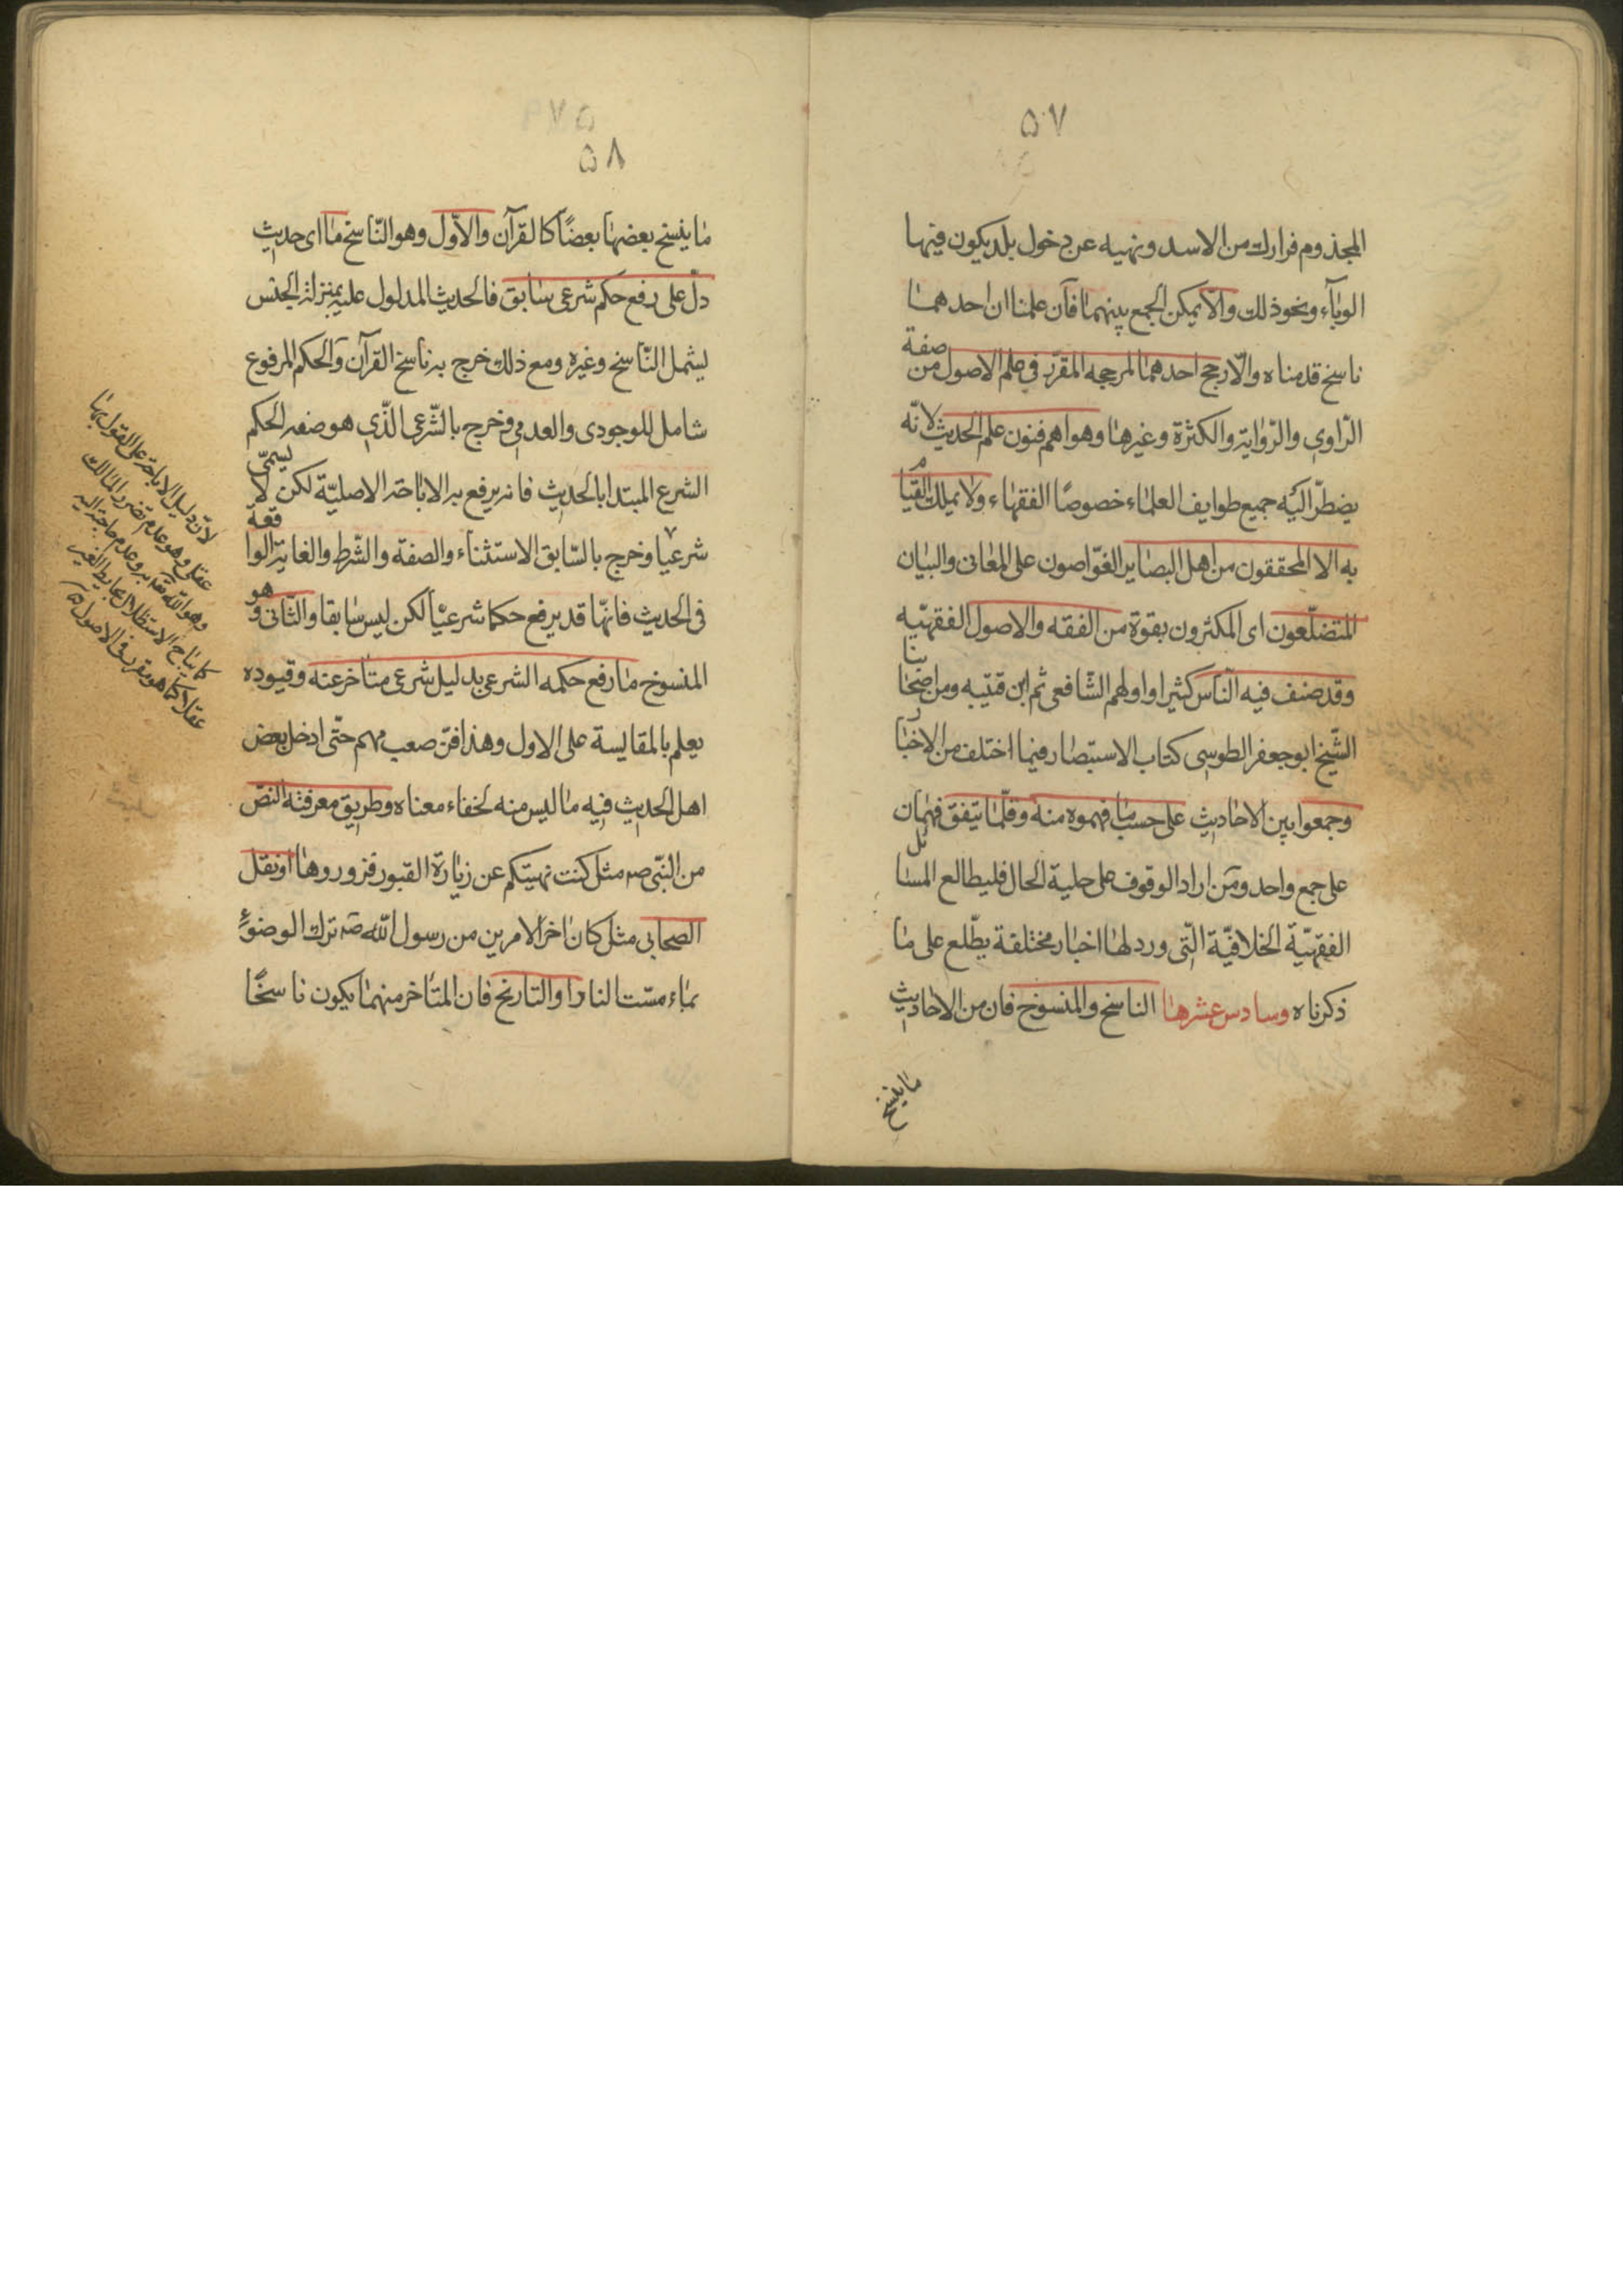 ۵۷
المجذوم فرارك من الاسد ونهيه عن دخول بلد يكون فيها
الوبآء ونحو ذلك والّا يمكن الجمع بينهما فآن علمنا ان احدهما
ناسخ قدمناه والّا رجح احدهما المرجحه المقرّر في علم الاصول من صفة
الرّاوي والرّواية والكثرة وغيرها وهو اهم فنون علم الحديث لانّه
يضطرّ اليه جميع طوايف العلماء خصوصًا الفقهاء ولا يملك القيام
به الا المحققون من اهل البصاير الغوّاصون على المعانى والبيان
المتضلّعون اى المكثرون بقوة من الفقه والاصول الفقهيّه
وقد صنف فيه النّاس كثيرا واولهم الشّافعى ثم ابن قتيبه ومن اصحابنا
الشّيخ ابو جعفر الطوسى كتاب الاستبصار فيما اختلف من الاخبار
وجمعوا بين الاحاديث على حسب ما فهموه منه وقلّما يتفق فهمان
على جمع واحد ومن اراد الوقوف على جلية الحال فليطالع المسائل
الفقهيّة الخلافيّة الّتى ورد لها اخبار مختلفة يطّلع على ما
ذكرناه وسادس عشرها الناسخ والمنسوخ فان من الاحاديث
ما ينسخ
۵۸
ما ينسخ بعضها بعضًا كالقرآن والاوّل وهو النّاسخ ما اى حديث
دلّ على رفع حكم شرعى سابق فالحديث المدلول عليه بمنزلة الجنس
ليشمل النّاسخ وغيره ومع ذلك خرج به ناسخ القرآن والحكم المرفوع
شامل للوجودى والعدمي وخرج بالشّرعى الذّي هو صفه الحكم
الشرع المبتدا بالحديث فانه يرفع به الاباحة الاصليّة لكن لا يسمّى
شرعيا وخرج بالسّابق الاستثناء والصفة والشّرط والغاية الواقعة
فى الحديث فانّها قد يرفع حكما شرعيًا لكن ليس سابقا والثّانى وهو
المنسوخ ما رفع حكمه الشرعى بدليل شرعى متأخر عنه وقيوده
يعلم بالمقايسة على الاول وهذا فنّ صعب مهم حتّى ادخل بعض
اهل الحديث فيه ما ليس منه لخفاء معناه وطريق معرفته النصّ
من النّبى صه مثل كنت نهيتكم عن زيارة القبور فزوروها او نقل
الصحابى مثل كان اخر الامرين من رسول اللّه صه ترك الوضوء
بماء مسّت النار او التاريخ فان المتأخر منهما يكون ناسخًا
لانّ دليل الاباحة على القول بها
عقلى وهو عدم تضرر المالك
وهو اللّه تعه به وعدم حاجته اليه
كما يباح الاستظلال بحايط الغير
عقلا كما هو مقرر فى الاصول